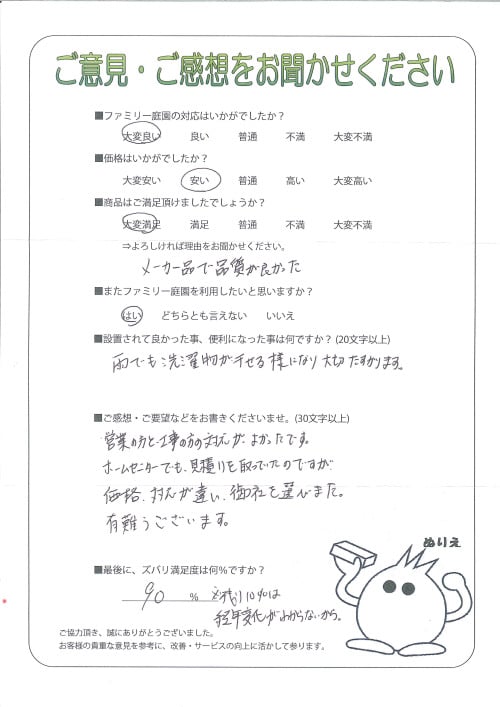 ご意見・ご感想をお聞かせください
■ファミリー庭園の対応はいかがでしたか？
大変良い 良い 普通 不満 大変不満
■価格はいかがでしたか？
大変安い 安い 普通 高い 大変高い
■商品はご満足頂けましたでしょうか？
大変満足 満足 普通 不満 大変不満
⇒よろしければ理由をお聞かせください。
メーカー品で品質が良かった
■またファミリー庭園を利用したいと思いますか？
はい どちらとも言えない いいえ
■設置されて良かった事、便利になった事は何ですか？(20文字以上)
雨でも洗濯物が干せる様になり大切たすかります。
■ご感想・ご要望などをお書きくださいませ。(30文字以上)
営業の方と工事の方の対応がよかったです。
ホームセンターでも、見積りを取っていたのですが
価格、対応が違い、御社を選びました。
有難うございます。
ぬりえ
■最後に、ズバリ満足度は何%ですか？
90 % ※残り10%は
経年変化がわからないから。
ご協力頂き、誠にありがとうございました。
お客様の貴重な意見を参考に、改善・サービスの向上に活かして参ります。